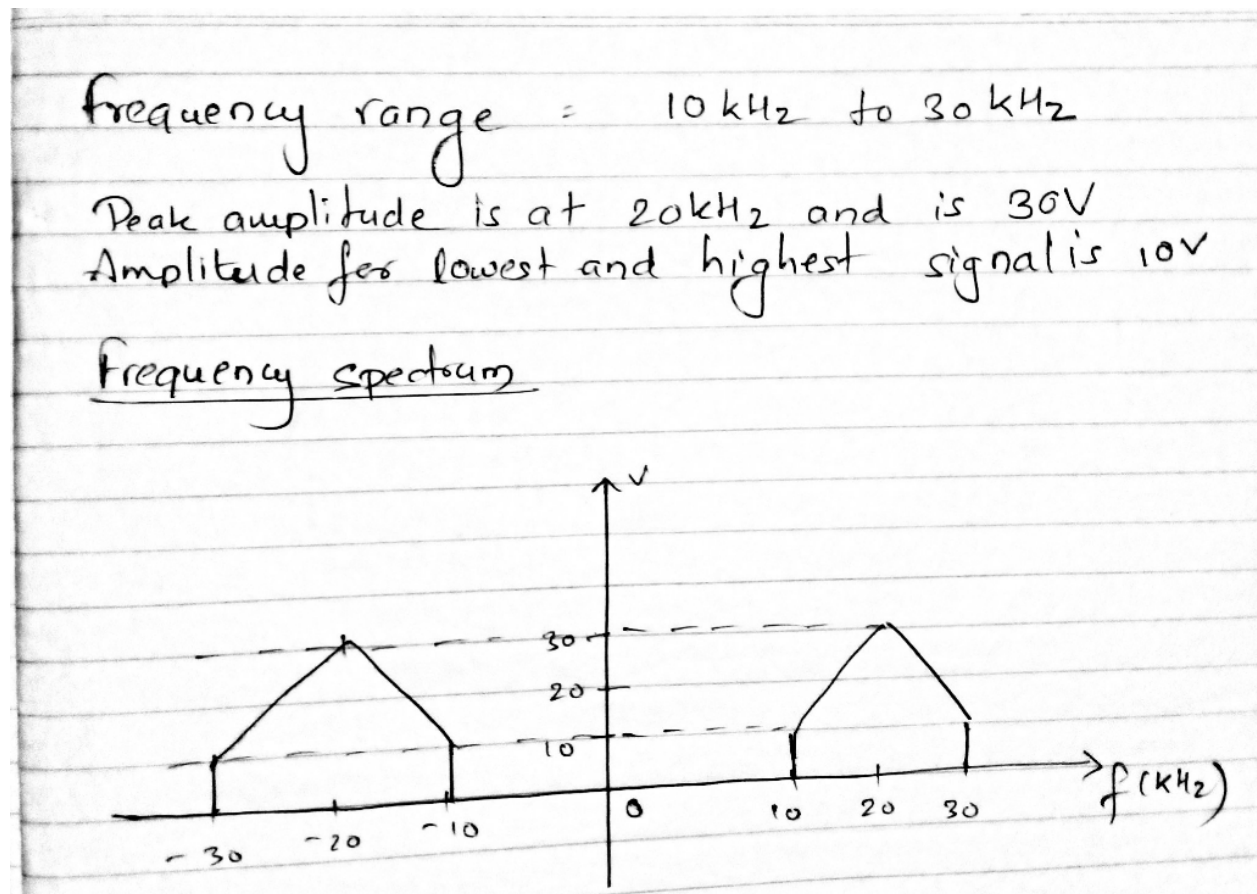 frequency range = 10 kHz to 30 kHz
Peak amplitude is at 20kHz and is 30V
Amplitude for lowest and highest signal is 10V
Frequency spectrum
V
30
20
10
0
-30 -20 -10 10 20 30 f(KHz)